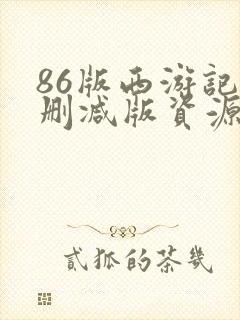 86版西游記
刪减版資源
貳狐的茶幾